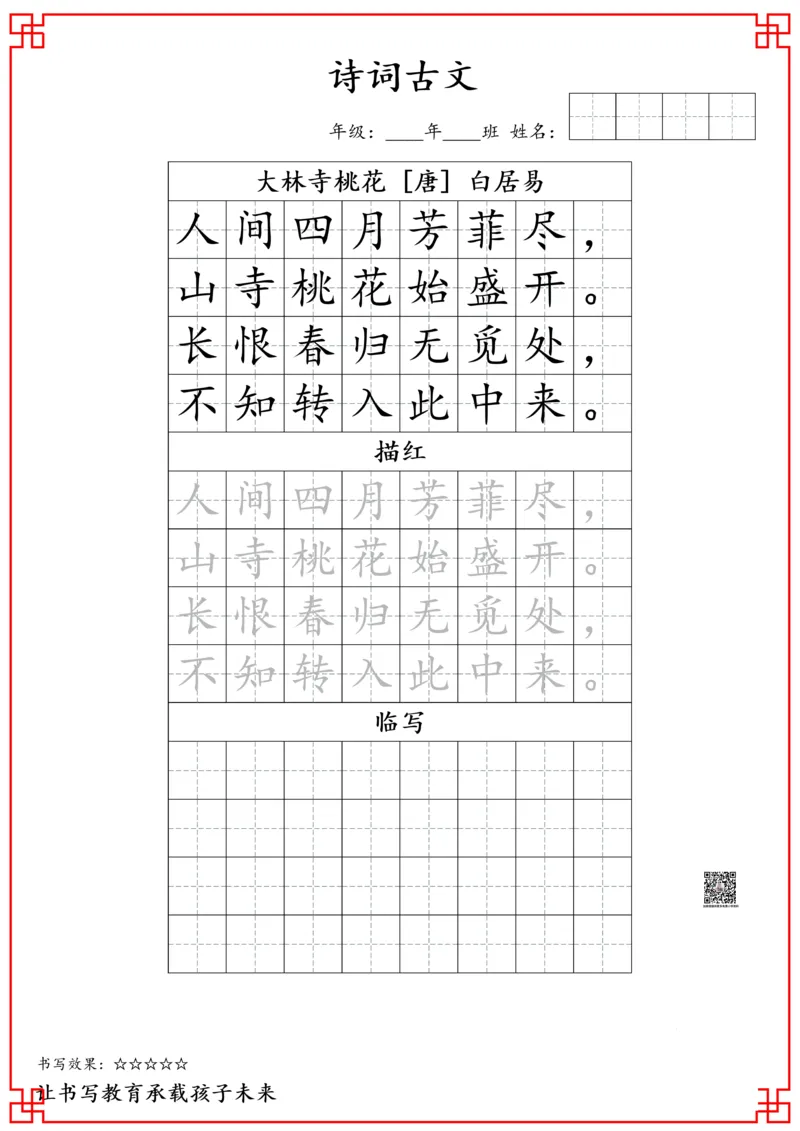 诗词古文
年级：____年____班 姓名：
大林寺桃花 [唐] 白居易
人间四月芳菲尽，
山寺桃花始盛开。
长恨春归无觅处，
不知转入此中来。
描红
人间四月芳菲尽，
山寺桃花始盛开。
长恨春归无觅处，
不知转入此中来。
临写
书写效果：☆☆☆☆☆
让书写教育承载孩子未来